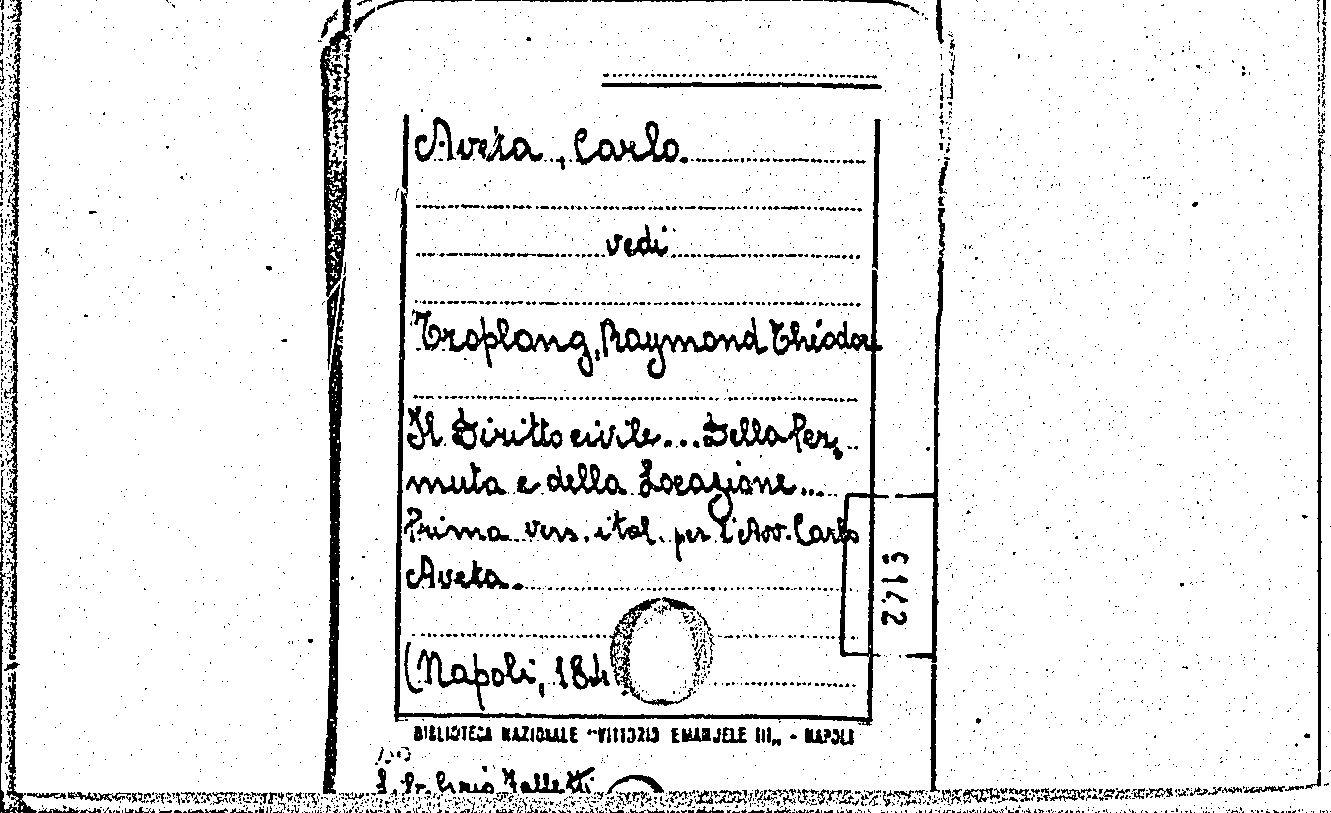 Aveta, Carlo.
vedi
Troplong, Raymond Théodor
Il Diritto civile... Della Per,
muta e della Locazione...
Prima vers. ital. per l'Avv. Carlo
Aveta.
(Napoli, 184
5142
BIBLIOTECA NAZIONALE "VITTORIO EMANUELE III„ - NAPOLI